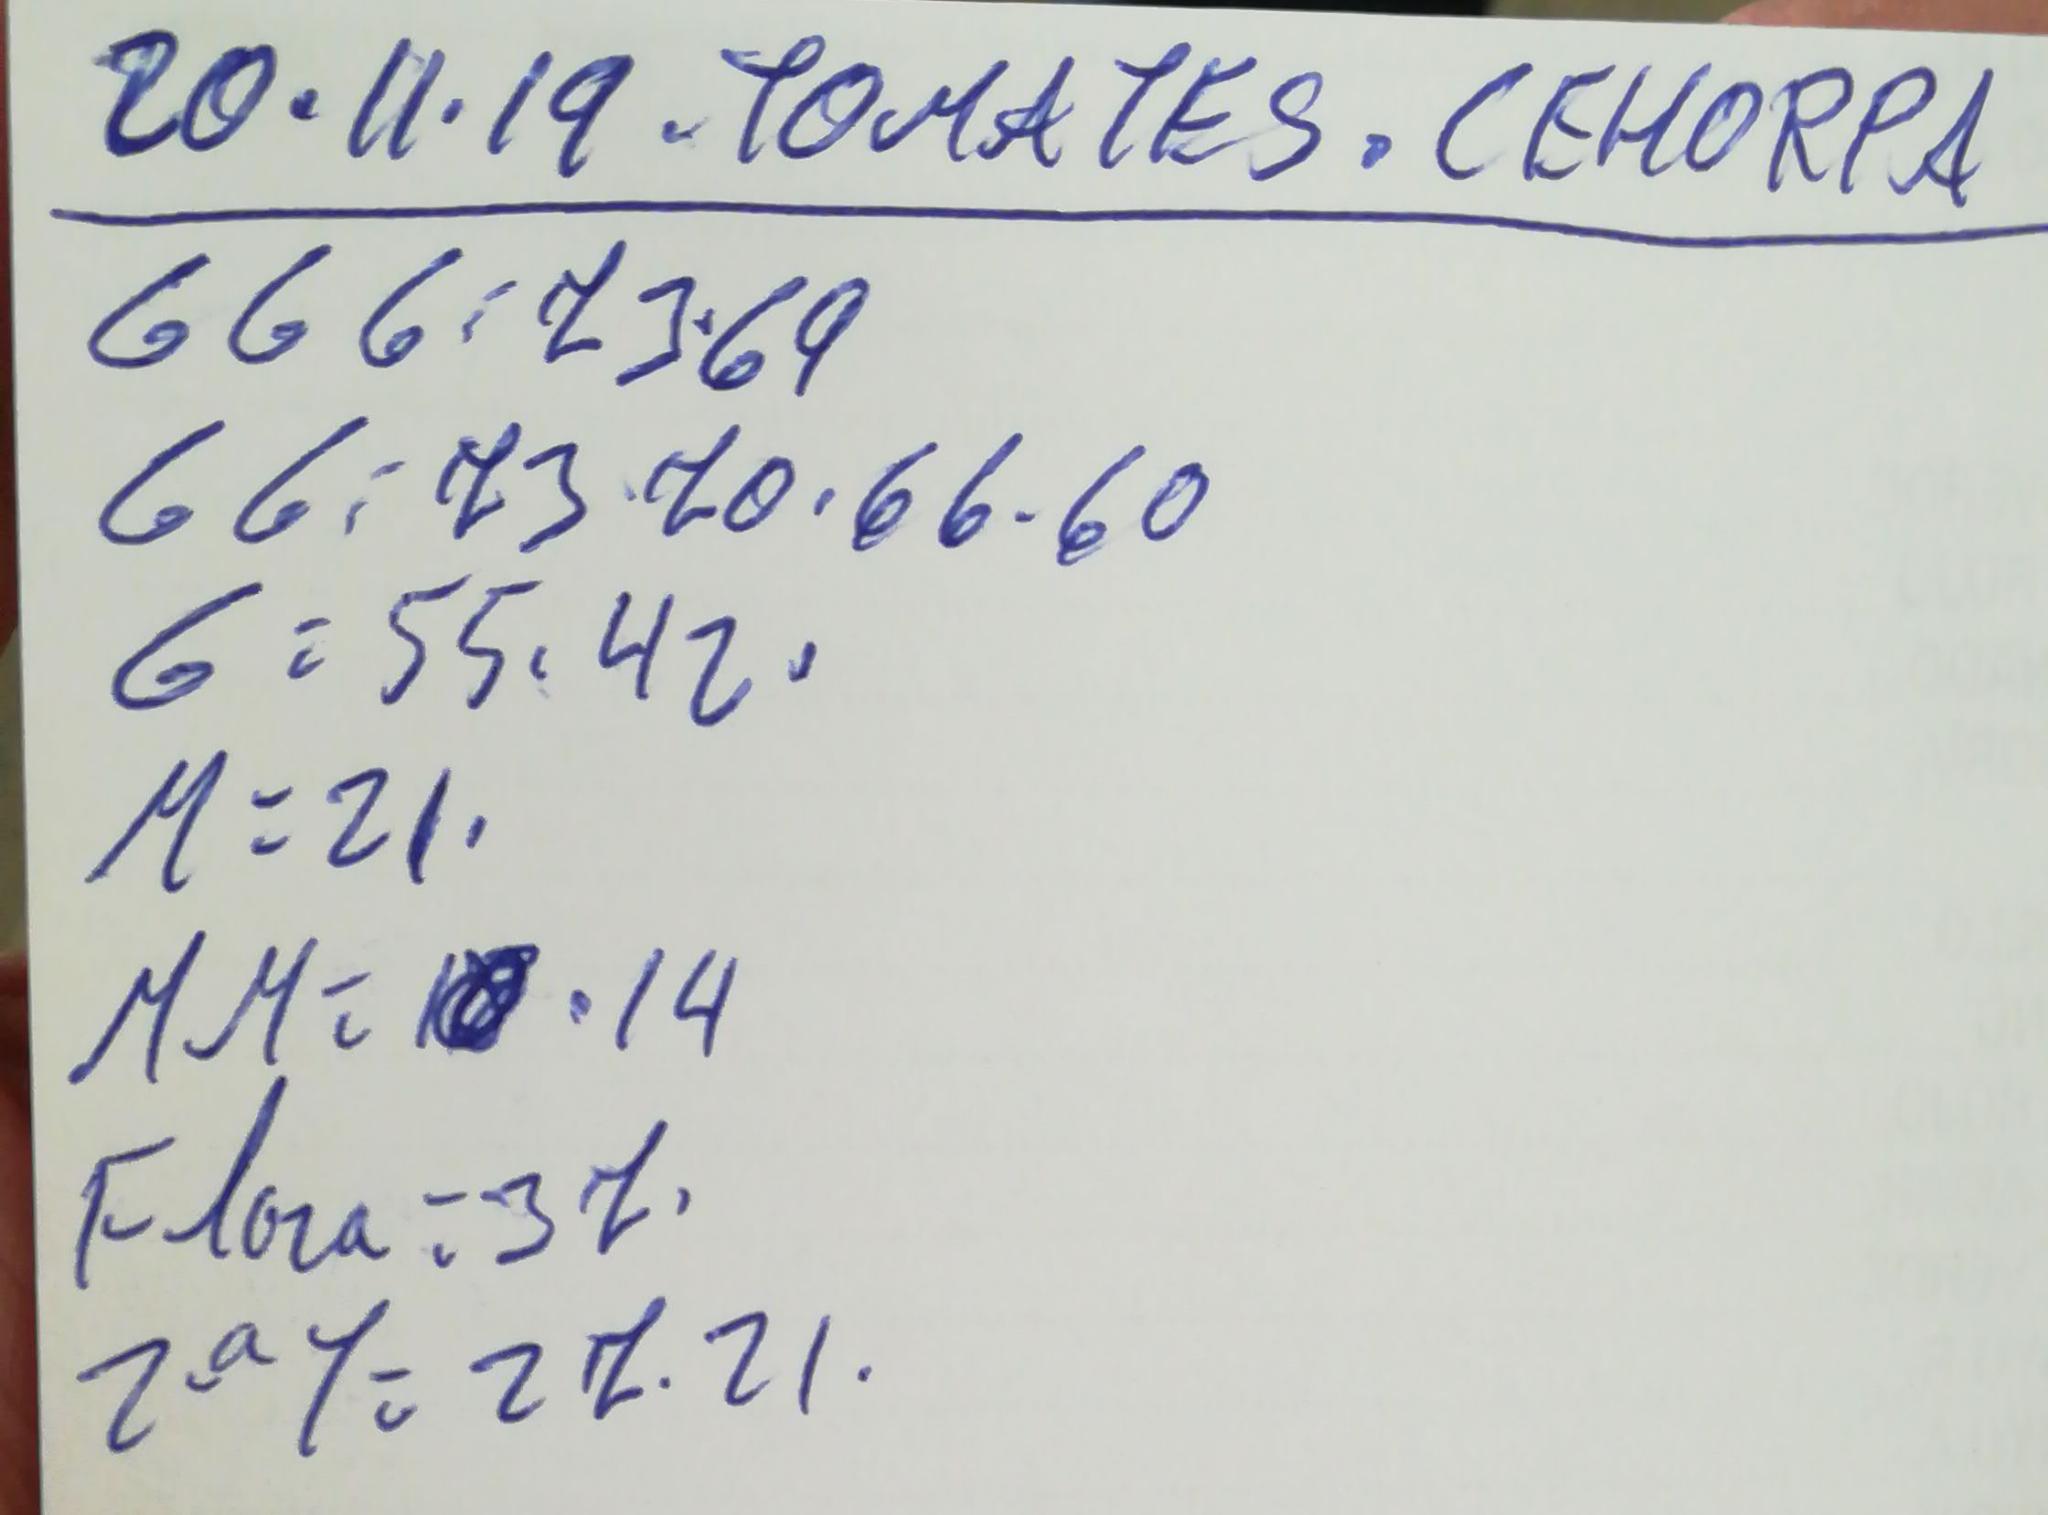 20.11.19.TOMATES.CEHORPA
GGG=73.69
GG=73.70.66.60
G=55.42.
M=21.
MM=18.14
Flora=37.
2ªY=27.21.